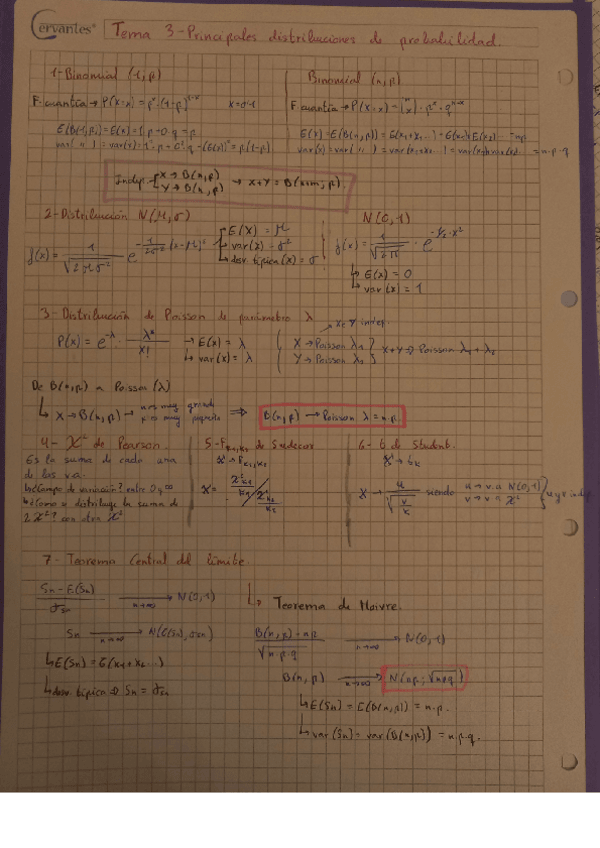 Cervantes
Tema 3-Principales distribuciones de probabilidad.
1-Binomial (1,p)
F. cuantía → P(X=x) = pˣ·(1-p)¹⁻ˣ x=0-1
E(B(1,p)) = E(x) = 1·p + 0·q = p
Binomial (n,p)
F. cuantía → P(X=x) = (ⁿₓ)·pˣ·qⁿ⁻ˣ
E(x) = E(B(n,p)) = E(x₁+x₂...) = E(x₁)+E(x₂)... = n·p
= n·p·q
Indep. X → B(n,p)
Y → B(m,p) → X+Y = B(n+m; p).
2-Distribución N(μ,σ)
f(x) = 1/√2πσ² e^-1/2σ² (x-μ)²
E(X) = μ
var(x) = σ²
desv. típica(x) = σ
N(0,1)
f(x) = 1/√2π · e^-1/2·x²
↳ E(x) = 0
↳ var(x) = 1
3-Distribución de Poisson de parámetro λ
P(x) = e^-λ · λˣ/x!
→ E(x) = λ
↳ var(x) = λ
x e y indep.
X → Poisson λ₁
Y → Poisson λ₂
X+Y → Poisson λ₁+λ₂
De B(n,p) a Poisson (λ)
↳ X → B(n,p) → n → muy grande
p → muy pequeño
⇒ B(n,p) → Poisson λ = n·p.
4- X² de Pearson
Es la suma de cada una
de las v.a.
↳ ¿Campo de variación? entre 0 y ∞
↳ ¿Cómo se distribuye la suma de
2 X²? con otra X²
5-F k₁,k₂ de Snedecor
X → F k₁,k₂
X = X²k₁/k₁ / X²k₂/k₂
6- t de Student.
X → tk
X → u/√v/k siendo u → v.a N(0,1)
v → v.a X²
u y v indep
7- Teorema Central del límite.
Sn-E(Sn)/σsn → n→∞ N(0,1)
Sn → n→∞ N(E(Sn),σsn)
↳ E(Sn) = E(x₁+x₂...)
↳ desv típica ⇒ Sn = σsn
↳ Teorema de Moivre.
B(n,p)-n·p/√n·p·q → n→∞ N(0,1)
B(n,p) → n→∞ N(n·p; √n·p·q)
↳ E(Sn) = E(B(n,p)) = n·p.
↳ var(Sn) = var(B(n,p)) = n·p·q.